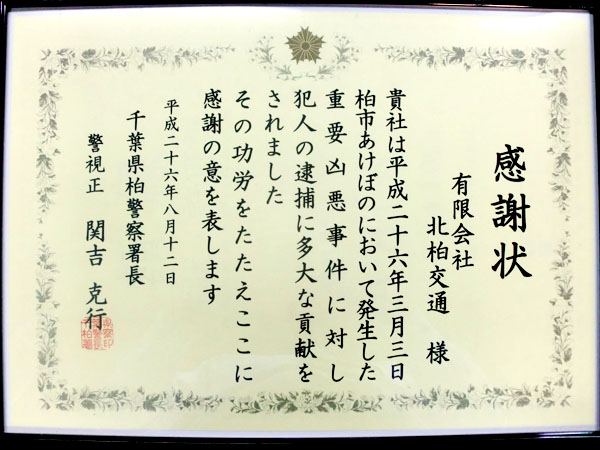 感謝状
有限会社
北柏交通 様
貴社は平成二十六年三月三日
柏市あけぼのにおいて発生した
重要凶悪事件に対し
犯人の逮捕に多大な貢献を
されました
その功労をたたえここに
感謝の意を表します
平成二十六年八月十二日
千葉県柏警察署長
警視正 関吉 克行